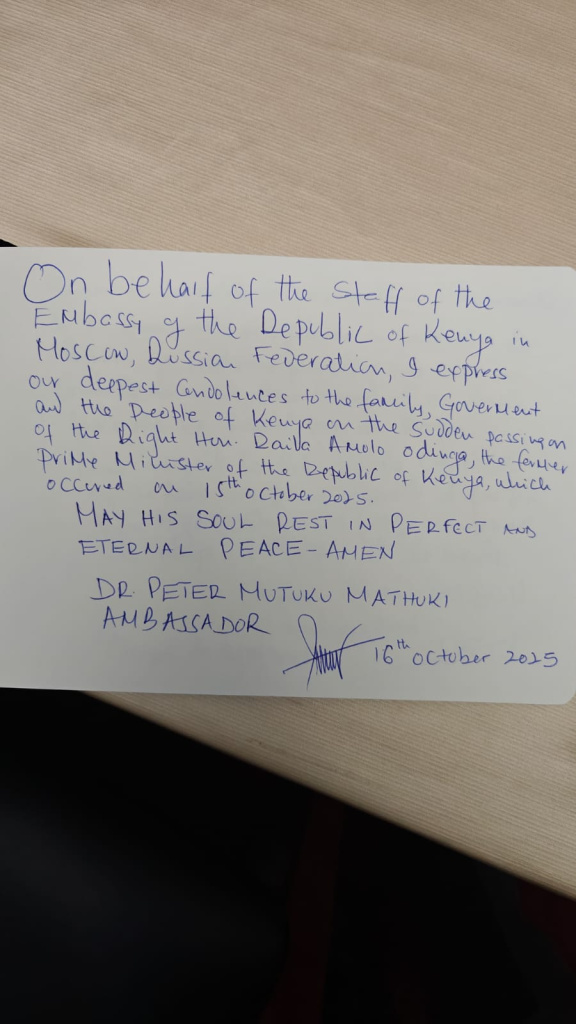 On behalf of the Staff of the
Embassy of the Republic of Kenya in
Moscow, Russian Federation, I express
our deepest Condolences to the family, Goverment
and the People of Kenya on the Sudden passing on
of the Right Hon. Raila Amolo Odinga, the former
Prime Minister of the Republic of Kenya, which
occured on 15th October 2025.
MAY HIS SOUL REST IN PERFECT AND
ETERNAL PEACE - AMEN
DR. PETER MUTUKU MATHUKI
AMBASSADOR
16th October 2025